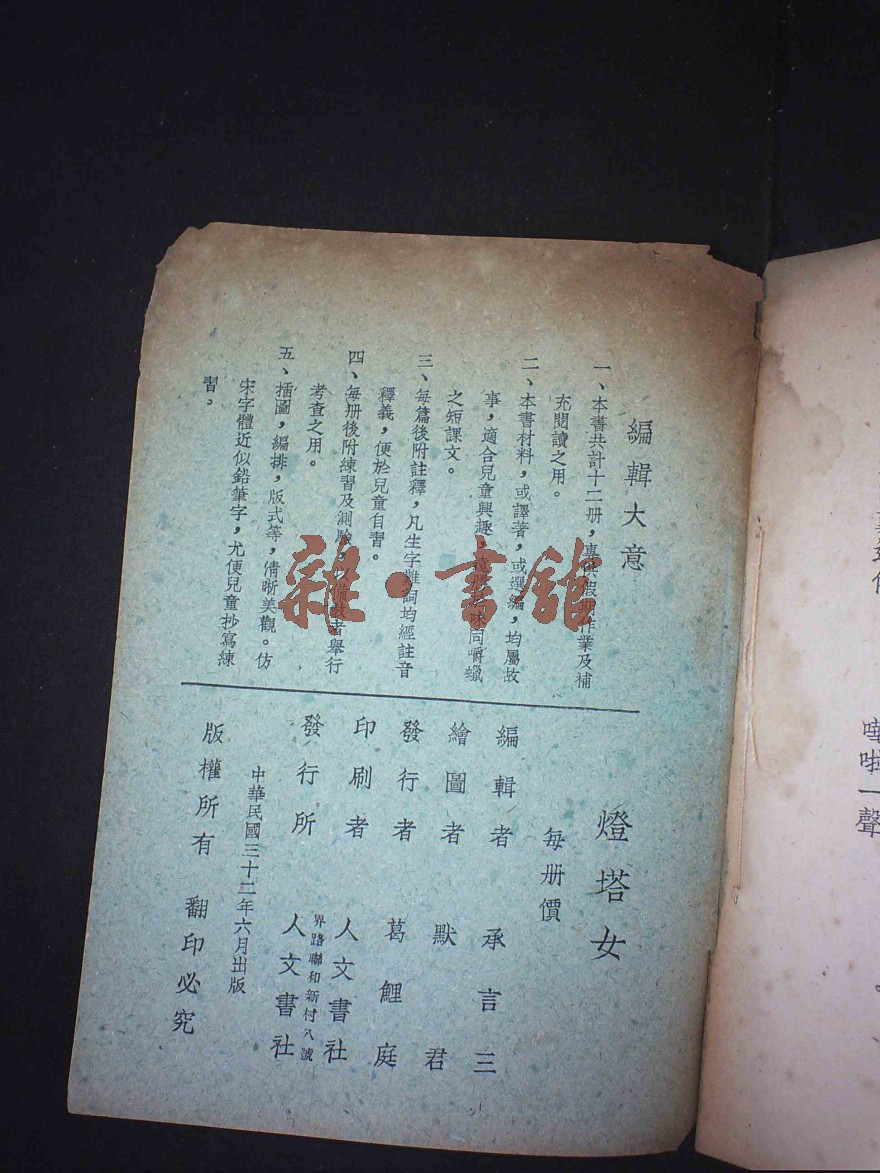 編輯大意
一、本書共計十二册，專供假期作業及補
充閱讀之用。
二、本書材料，或譯著，或選編，均屬故
事，適合兒童興趣，味同嚼蠟
之短課文。
三、每篇後附註釋，凡生字難詞均經註音
釋義，便於兒童自習。
四、每册後附練習及測驗，以備教者舉行
考查之用。
五、插圖，編排，版式等，清晰美觀。仿
宋字體近似鉛筆字，尤便兒童抄寫練
習。
燈塔女
每册價
編輯者 承言三
繪圖者 默君
發行者 葛鯉庭
印刷者 人文書社
界路聯和新村八號
發行所 人文書社
中華民國三十二年六月出版
版權所有 翻印必究
嘩啦一聲
雜·書館